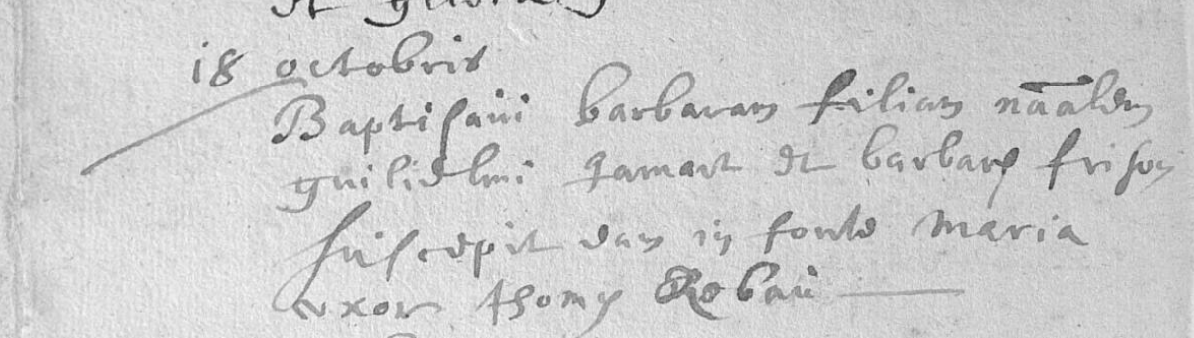 18 octobris
Baptisaui barbaram filiam nãalem
guilielmi Jamart et barbarę frison
suscepit eam in fonte Maria
vxor thomę Robau